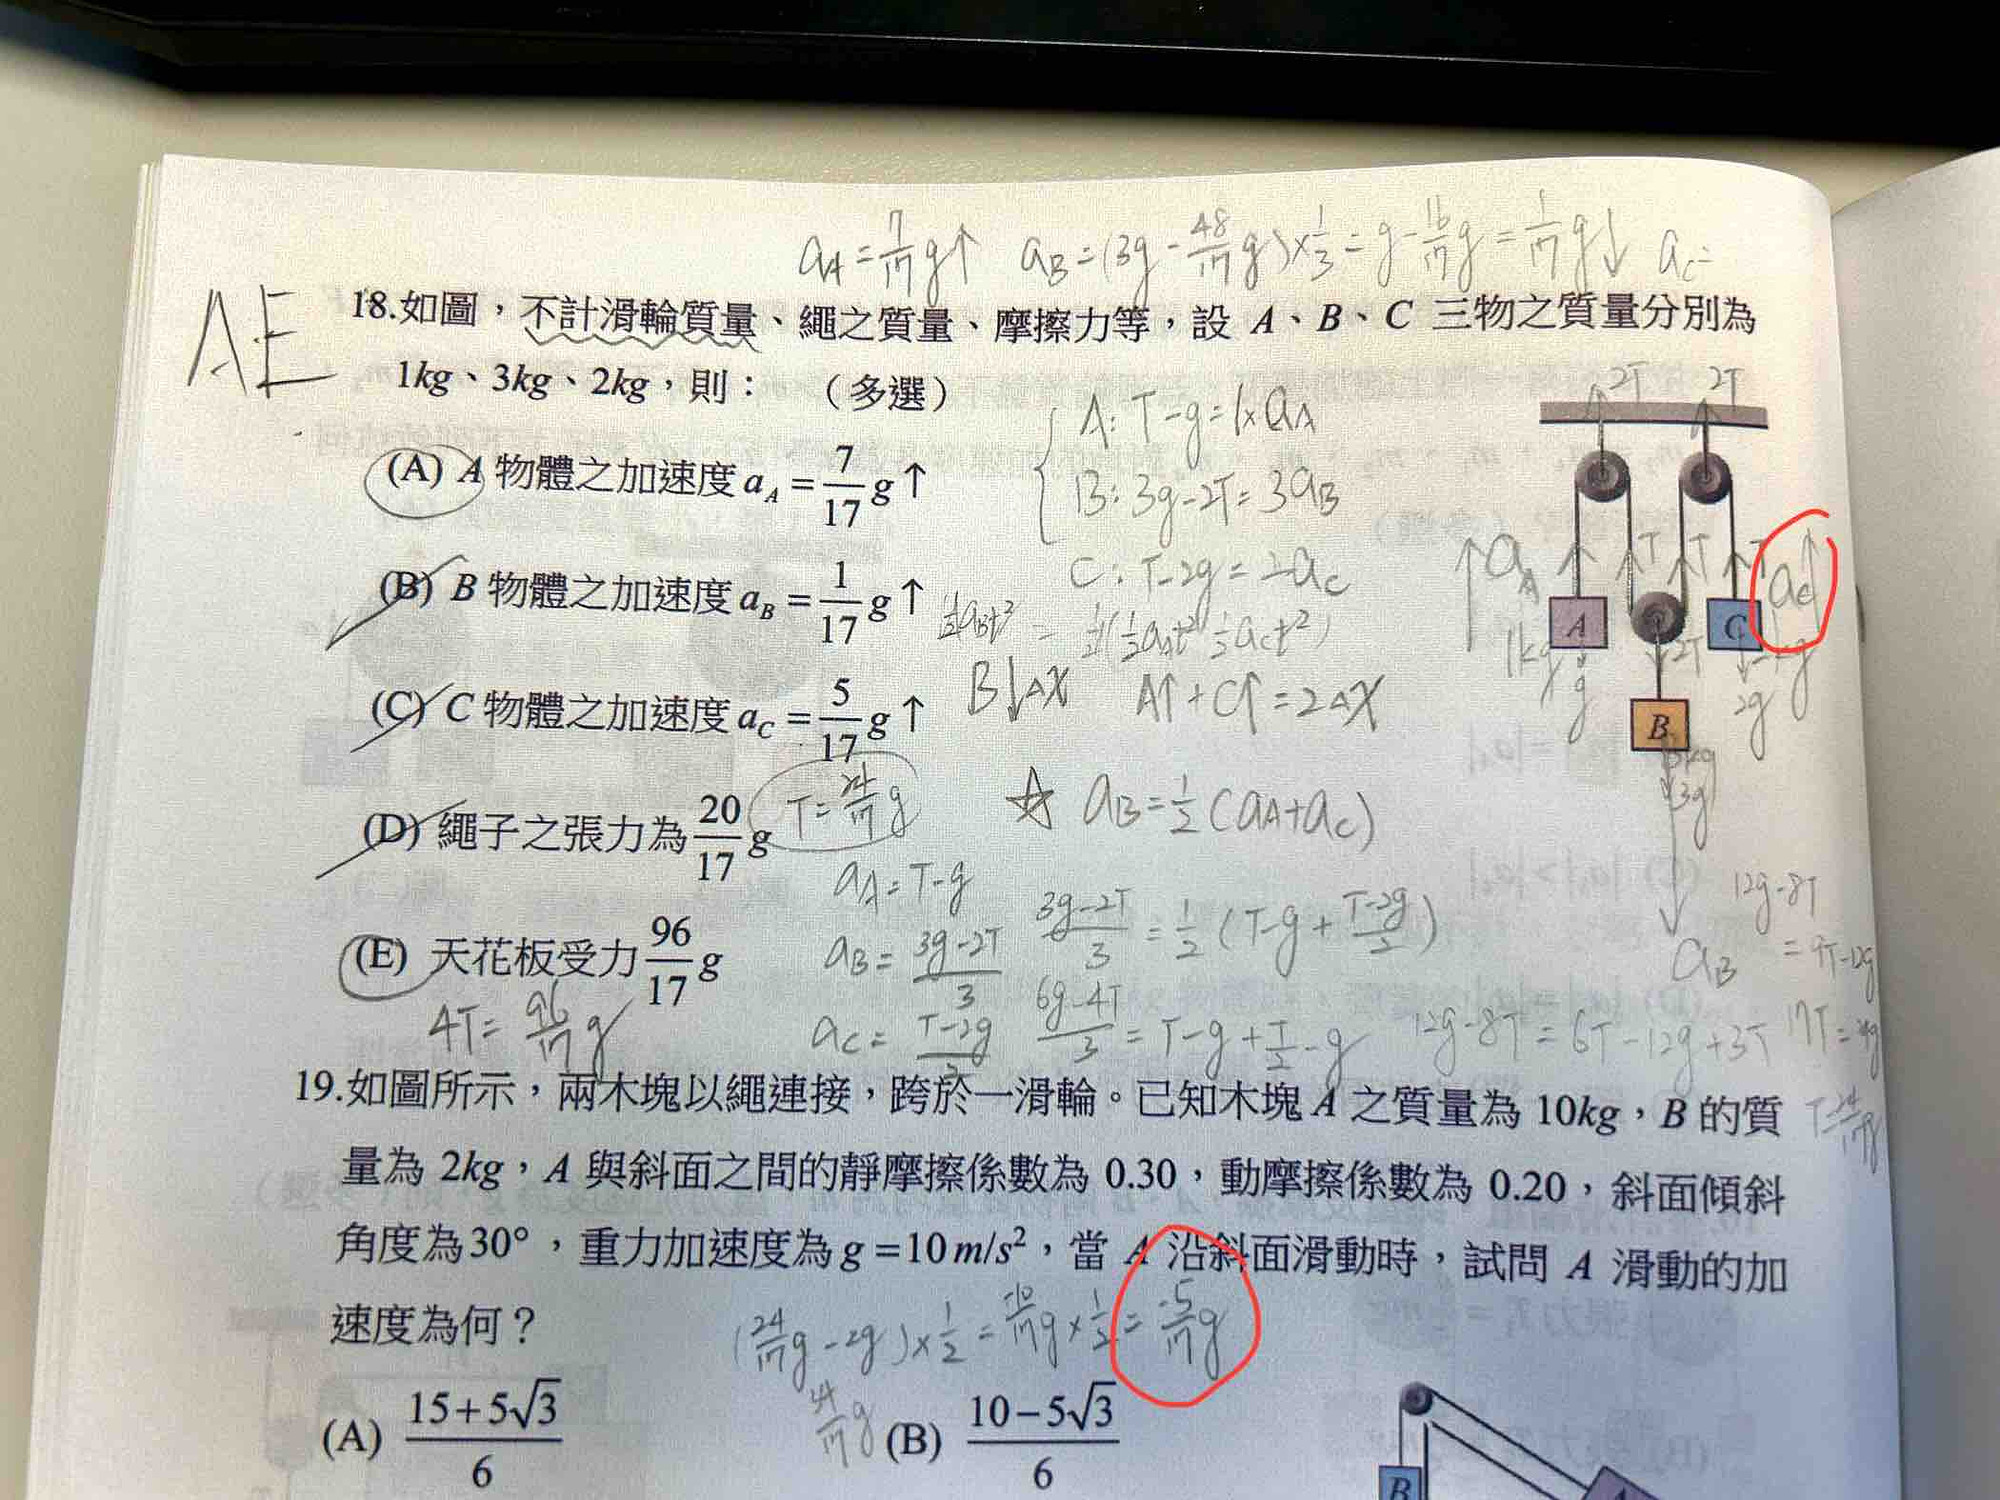 a_A = 7/17 g↑ a_B = (3g - 48/17 g) × 1/3 = g - 16/17 g = 1/17 g↓ a_C =
AE
18.如圖，不計滑輪質量、繩之質量、摩擦力等，設 A、B、C 三物之質量分別為
1kg、3kg、2kg，則：（多選）
2T 2T
A: T - g = 1×a_A
(A) A 物體之加速度 a_A = 7/17 g↑
B: 3g - 2T = 3a_B
C: T - 2g = 2a_C
(B) B 物體之加速度 a_B = 1/17 g↑
1/2 a_B t² = 1/2 (1/2 a_A t² 1/2 a_C t²)
a_A T T T a_C
A C
1kg g 2T 2g
B
3kg
3g
a_B
(C) C 物體之加速度 a_C = 5/17 g↑
B↓ΔX A↑ + C↑ = 2ΔX
(D) 繩子之張力為 20/17 g
T = 24/17 g
☆ a_B = 1/2 (a_A + a_C)
a_A = T - g
a_B = (3g - 2T)/3
a_C = (T - 2g)/2
(3g - 2T)/3 = 1/2 (T - g + (T - 2g)/2)
(6g - 4T)/3 = T - g + T/2 - g
12g - 8T = 6T - 12g + 3T
12g - 8T
= 9T - 12g
17T = 24g
T = 24/17 g
(E) 天花板受力 96/17 g
4T = 96/17 g
19.如圖所示，兩木塊以繩連接，跨於一滑輪。已知木塊 A 之質量為 10kg，B 的質
量為 2kg，A 與斜面之間的靜摩擦係數為 0.30，動摩擦係數為 0.20，斜面傾斜
角度為30°，重力加速度為 g = 10 m/s²，當 A 沿斜面滑動時，試問 A 滑動的加
速度為何？
(24/17 g - 2g) × 1/2 = -10/17 g × 1/2 = -5/17 g
34/17 g
(A) (15+5√3)/6
(B) (10−5√3)/6
B A